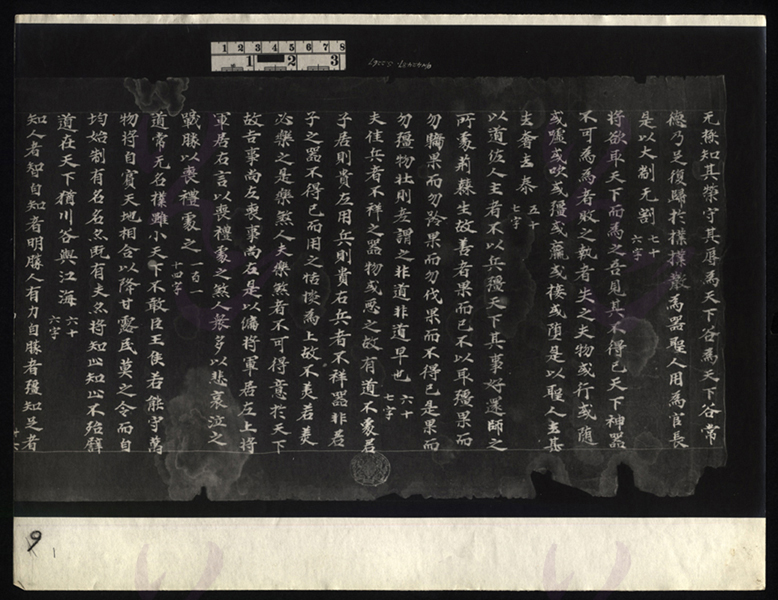 无極知其榮守其辱為天下谷為天下谷常
德乃足復歸於樸樸散為器聖人用為官長
是以大制无割 七十六字
將欲取天下而為之吾見其不得已天下神器
不可為為者敗之執者失之夫物或行或隨
或噓或吹或彊或羸或接或墮是以聖人去甚
去奢去泰 五十七字
以道佐人主者不以兵彊天下其事好還師之
所處荊棘生故善者果而已不以取彊果而
勿驕果而勿矜果而勿伐果而不得已是果而
勿彊物壯則老謂之非道非道早也 六十七字
夫佳兵者不祥之器物或惡之故有道不處君
子居則貴左用兵則貴右兵者不祥器非君
子之器不得已而用之恬惔為上故不美若美
必樂之是樂煞人夫樂煞者不可得意於天下
故吉事尚左喪事尚右是以偏將軍居左上將
軍居右言以喪禮處之煞人衆多以悲哀泣之
戰勝以喪禮處之 一百一十四字
道常无名樸雖小天下不敢臣王侯若能守萬
物將自賓天地相合以降甘露民莫之令而自
均始制有名名亦既有夫亦將知止知止不殆譬
道在天下猶川谷與江海 六十六字
知人者智自知者明勝人有力自勝者彊知足者
1 2 3 4 5 6 7 8
1 2 3
9